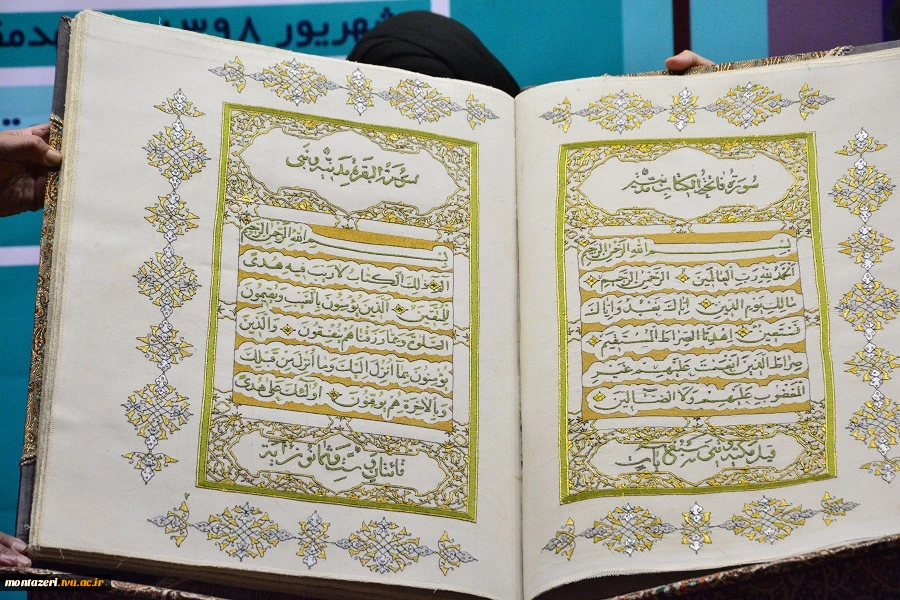 شهریور ۱۳۹۸
سورة فاتحة الكتاب
بسم الله الرحمن الرحيم
الحمد لله رب العالمين الرحمن الرحيم
مالك يوم الدين اياك نعبد واياك
نستعين اهدنا الصراط المستقيم
صراط الذين انعمت عليهم غير
المغضوب عليهم ولا الضالين
سورة البقرة مدنية وهي
بسم الله الرحمن الرحيم
الم ذلك الكتاب لا ريب فيه هدى
للمتقين الذين يؤمنون بالغيب ويقيمون
الصلوة ومما رزقناهم ينفقون والذين
يؤمنون بما أنزل اليك وما أنزل من قبلك
وبالآخرة هم يوقنون اولئك على هدى
مائتان وست وثمانون آية
montazeri.tvu.ac.ir